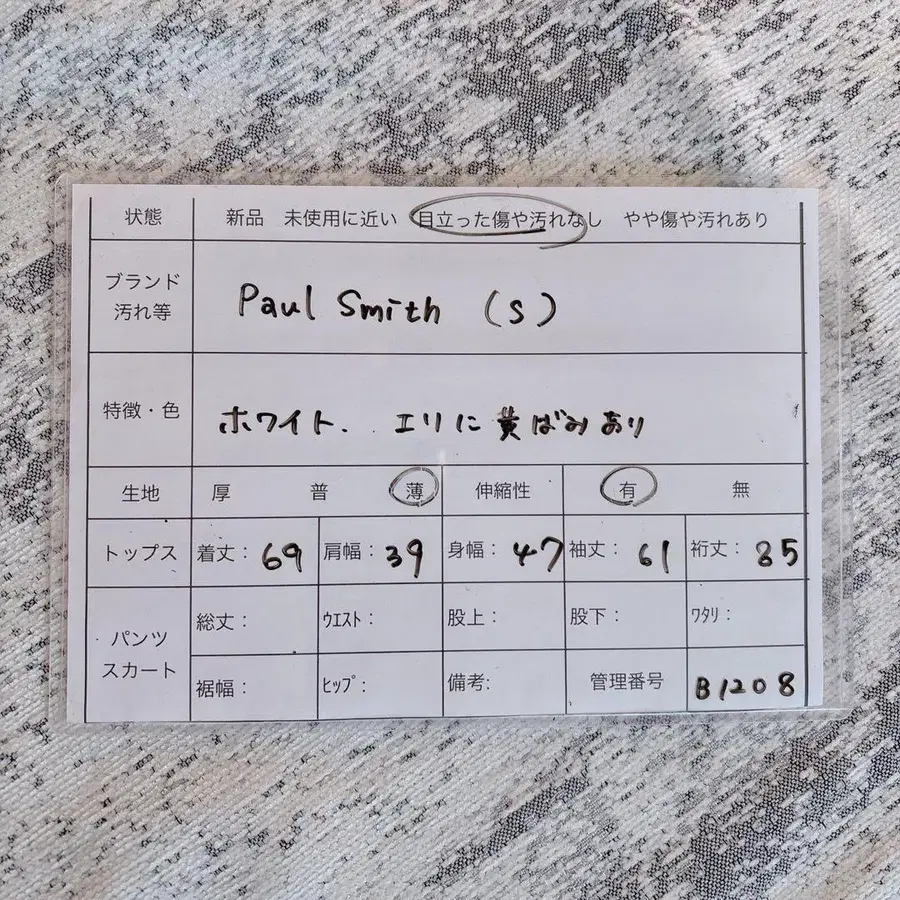 状態 新品 未使用に近い 目立った傷や汚れなし やや傷や汚れあり
ブランド
汚れ等
Paul Smith (S)
特徴・色 ホワイト. エリに黄ばみあり
生地 厚 普 薄 伸縮性 有 無
トップス 着丈: 69 肩幅: 39 身幅: 47 袖丈: 61 裄丈: 85
パンツ
スカート
総丈: ウエスト: 股上: 股下: ワタリ:
裾幅: ヒップ: 備考: 管理番号 B1208